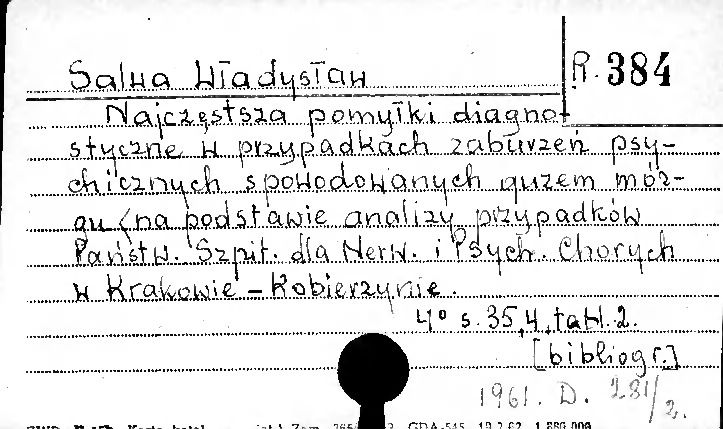 Salwa Władysław
R. 384
Najczęstsza pomyłki diagno-
styczne w przypadkach zaburzeń psy-
chicznych spowodowanych guzem móz-
gu (na podstawie analizy przypadków
Państw. Szpit. dla Nerw. i Psych. Chorych
w Krakowie - Kobierzynie.
4° s. 35, 4, tabl. 2.
[bibliogr.]
1961. D. 281/2.